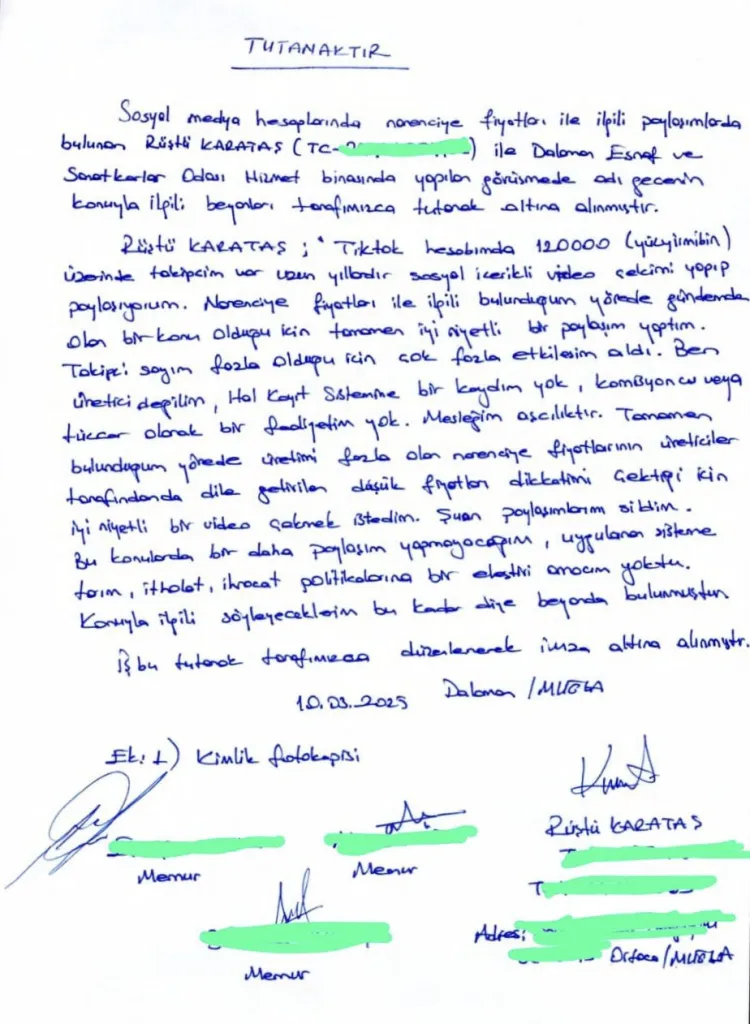 TUTANAKTIR
Sosyal medya hesaplarında narenciye fiyatları ile ilgili paylaşımlarda
bulunan Rüştü KARATAŞ (TC- ) ile Dalaman Esnaf ve
Sanatkarlar Odası Hizmet binasında yapılan görüşmede adı geçenin
konuyla ilgili beyanları tarafımızca tutanak altına alınmıştır.
Rüştü KARATAŞ ; " Tiktok hesabımda 120000 (yüzyirmibin)
üzerinde takipçim var uzun yıllardır sosyal içerikli video çekimi yapıp
paylaşıyorum. Narenciye fiyatları ile ilgili bulunduğum yörede gündemde
olan bir konu olduğu için tamamen iyi niyetli bir paylaşım yaptım.
Takipçi sayım fazla olduğu için çok fazla etkileşim aldı. Ben
üretici değilim, Hal Kayıt Sistemine bir kaydım yok, komisyoncu veya
tüccar olarak bir faaliyetim yok. Mesleğim aşçılıktır. Tamamen
bulunduğum yörede üretimi fazla olan narenciye fiyatlarının üreticiler
tarafındanda dile getirilen düşük fiyatları dikkatimi çektiği için
iyi niyetli bir video çekmek istedim. Şuan paylaşımlarım sildim.
Bu konularda bir daha paylaşım yapmayacağım, uygulanan sisteme
tarım, ithalat, ihracat politikalarına bir eleştiri amacım yoktur.
Konuyla ilgili söyleyeceklerim bu kadar diye beyanda bulunmuştur.
İş bu tutanak tarafımızca düzenlenerek imza altına alınmıştır.
10.03.2025 Dalaman /MUĞLA
Ek: 1) Kimlik fotokopisi
Rüştü KARATAŞ
Memur
Memur
Adres:
Ortaca/MUĞLA
Memur